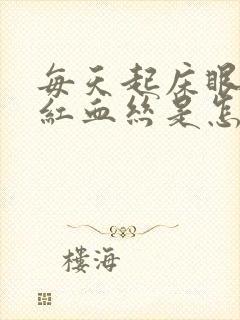 每天起床眼
紅血絲是怎
樓海